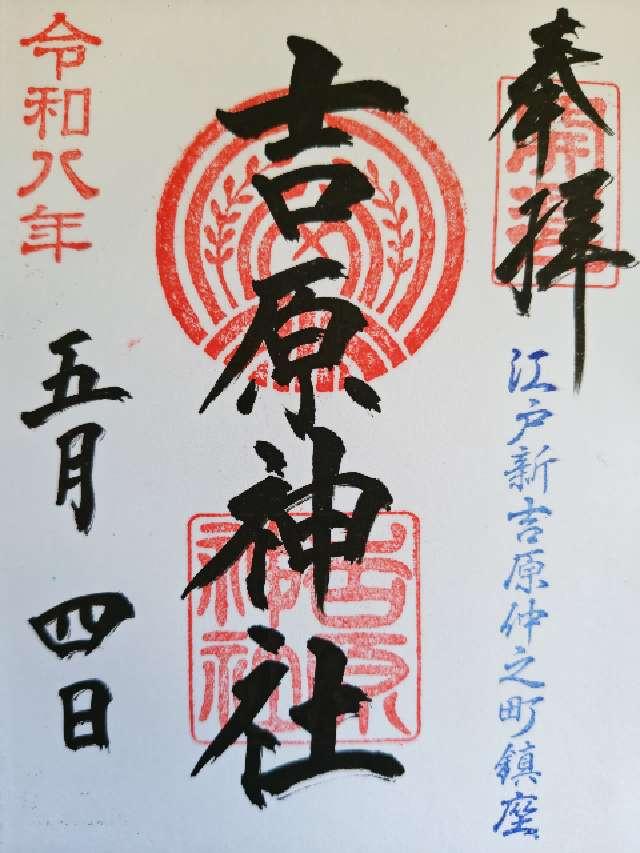 奉拝
開運
江戸新吉原仲之町鎮座
吉原神社
吉原
神社
令和八年
五月
四日